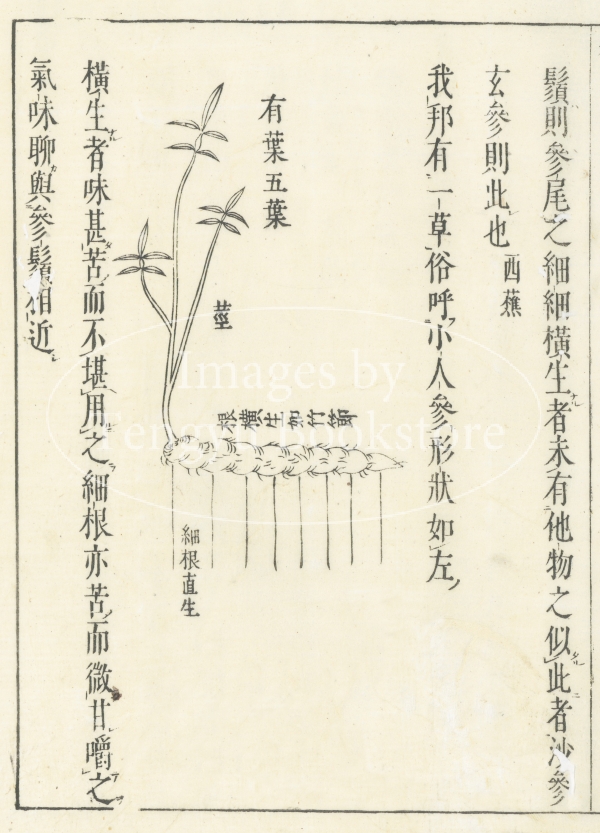 鬚則參尾之細細橫生者未有他物之似此者沙參
玄參則此也 西蕉
我邦有一草俗呼小人參形狀如左
有葉五葉
莖
根橫生如竹節
細根直生
橫生者味甚苦而不堪用之細根亦苦而微甘嚼之
氣味聊與參鬚相近
Images by
Tengyu Bookstore